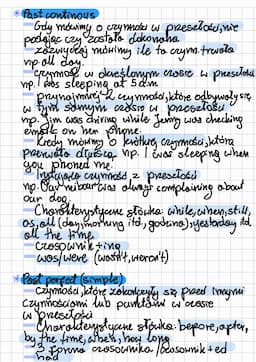 Past continous
- Gdy mówimy o czymś w przeszłości, nie
podając czy została dokonana
- zazwyczaj mówimy ile to czyn. trwała
np. all day.
- czynność w określonym czasie w przeszłości
np. I was sleeping at 5 am
- przynajmniej 2 czynności, które odbywały się
w tym samym czasie w przeszłości
np. Jim was driving while Jenny was checking
emails on her phone.
- Kiedy mówimy o krótkiej czynności, która
przerwała dłuższą np. I was sleeping when
you phoned me.
- Irytująca czynność z przeszłości
np. Our was always complaining about
our dog.
- Charakterystyczne słówka: while, when, still,
as, all (day, morning itd, godzina), yesterday itd.
all the time.
- czasownik + ing
- was/were (wasn't, weren't)
Past perfect (simple)
- Czynności, które zakończyły się przed innymi
czynnościami lub punktami w czasie
w przeszłości
- Charakterystyczne słówka: before, after,
by the time, when, how long
- 3 forma czasownika / czasownik + ed
- had